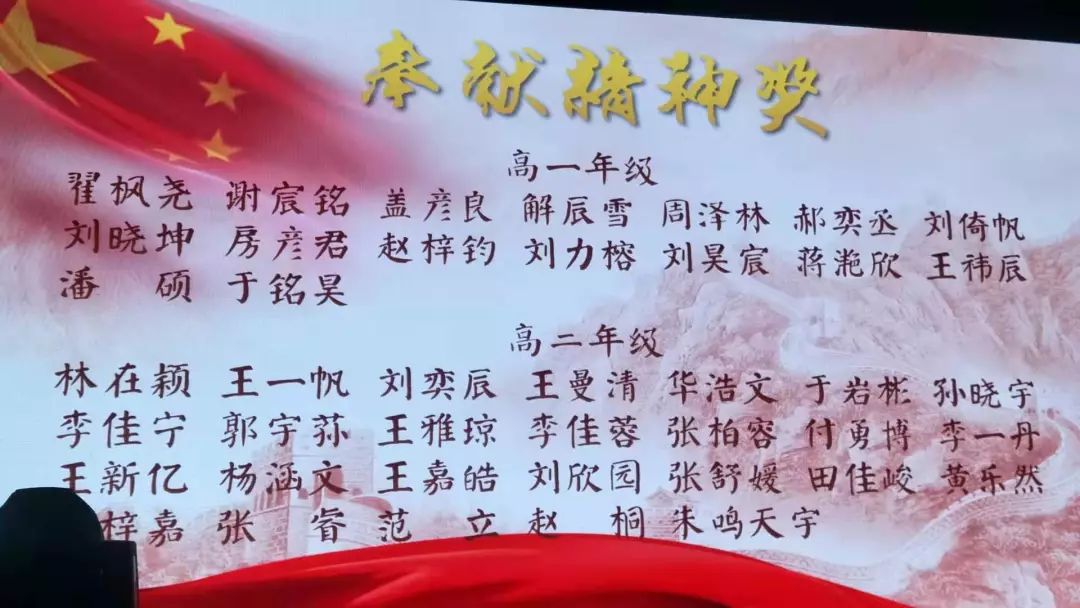 奉献精神奖
高一年级
翟枫尧 谢宸铭 盖彦良 解辰雪 周泽林 郝奕丞 刘倚帆
刘晓坤 房彦君 赵梓钧 刘力榕 刘昊宸 蒋滟欣 王祎辰
潘 硕 于铭昊
高二年级
林在颖 王一帆 刘奕辰 王曼清 华浩文 于岩彬 孙晓宇
李佳宁 郭宇荪 王雅琼 李佳蓉 张柏容 付勇博 李一丹
王新亿 杨涵文 王嘉皓 刘欣园 张舒媛 田佳峻 黄乐然
梓嘉 张 睿 范 立 赵 桐 朱鸣天宇